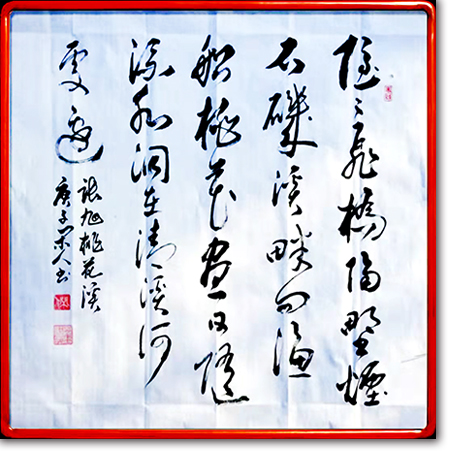 隱〻飛橋隔野煙
石磯溪畔问漁
船桃花盡日隨
流水洞在清溪何
處邊
張旭桃花溪
庚子 人书